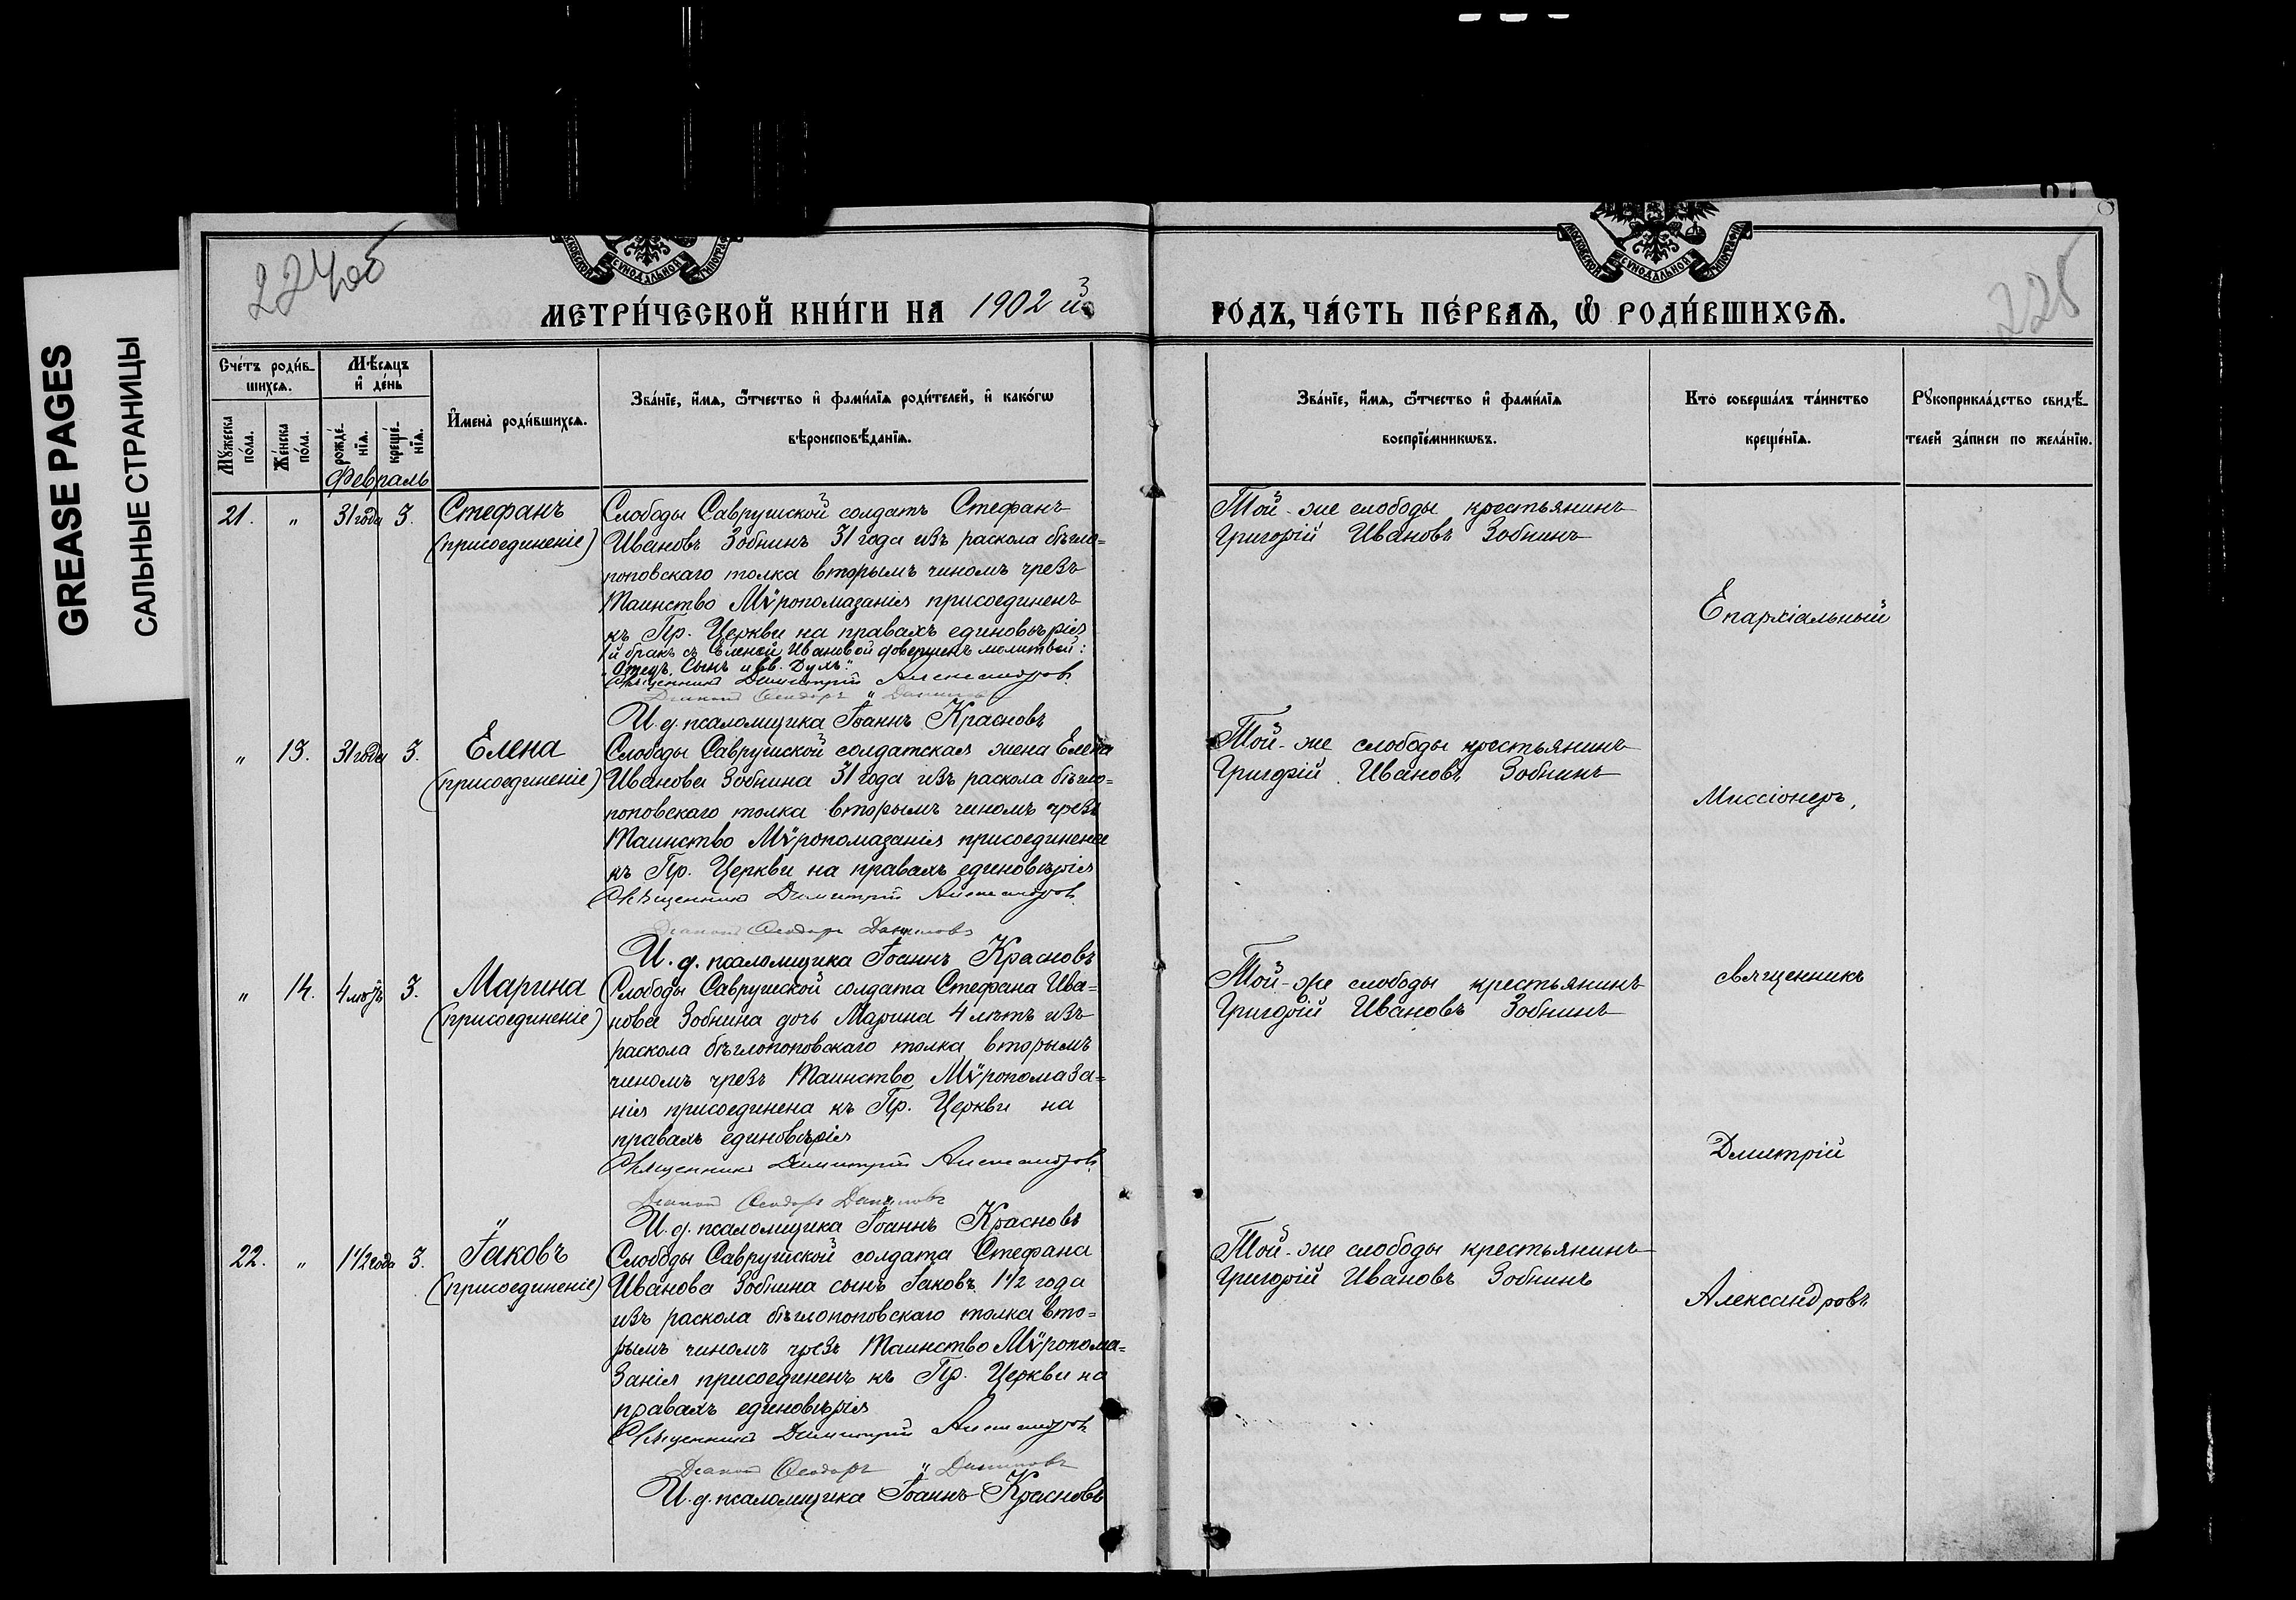 GREASE PAGES
САЛЬНЫЕ СТРАНИЦЫ
224об
225
МОСКОВСКОЙ СѴНОДАЛЬНОЙ ТИПОГРАФІИ
МОСКОВСКОЙ СѴНОДАЛЬНОЙ ТИПОГРАФІИ
МЕТРИ́ЧЕСКОЙ КНИ́ГИ НА 1902 й 3 ГО́ДЪ, ЧА́СТЬ ПЕ́РВАѦ, Ѡ РОДИ́ВШИХСѦ.
Сче́тъ роди́в-
шихсѧ.
Мѣ́сѧцъ
и де́нь
Мꙋ́жеска
по́ла.
Же́нска
по́ла.
рожде́-
нїѧ.
креще́-
нїѧ.
И҆мена̀ роди́вшихсѧ.
Зва́нїе, и҆́мѧ, ѻ҆́тчество и҆ фами́лїѧ роди́телей, и҆ како́гѡ
вѣроисповѣ́данїѧ.
Зва́нїе, и҆́мѧ, ѻ҆́тчество и҆ фами́лїѧ
воспрїе́мникѡвъ.
Кто̀ соверша́лъ та́инство
креще́нїѧ.
Рꙋкоприкла́дство свидѣ́-
телей за́писи по жела́нїю.
Февраль
21. " 31 года 3. Стефанъ
(присоединеніе)
Слободы Саврушской солдатъ Стефанъ
Ивановъ Зобнинъ 31 года изъ раскола бѣгло=
поповскаго толка вторымъ чиномъ чрезъ
Таинство Мѵропомазанія присоединенъ
къ Пр. Церкви на правахъ единовѣрія
и бракъ съ Еленой Ивановой довершенъ молитвой:
"Отецъ, Сынъ и Св. Духъ."
Священникъ Димитрій Александровъ
Діаконъ Ѳеодоръ Даниловъ
И. д. псаломщика Іоаннъ Красновъ
Той-же слободы крестьянинъ
Григорій Ивановъ Зобнинъ
Епархіальный
" 13. 31 года 3. Елена
(присоединеніе)
Слободы Саврушской солдатская жена Елена
Иванова Зобнина 31 года изъ раскола бѣгло=
поповскаго толка вторымъ чиномъ чрезъ
Таинство Мѵропомазанія присоединена
къ Пр. Церкви на правахъ единовѣрія
Священникъ Димитрій Александровъ
Діаконъ Ѳеодоръ Даниловъ
И. д. псаломщика Іоаннъ Красновъ
Той-же слободы крестьянинъ
Григорій Ивановъ Зобнинъ
Миссіонеръ,
" 14. 4 лѣтъ 3. Марина
(присоединеніе)
Слободы Саврушской солдата Стефана Ива=
нова Зобнина дочь Марина 4 лѣтъ изъ
раскола бѣглопоповскаго толка вторымъ
чиномъ чрезъ Таинство Мѵропомаза=
нія присоединена къ Пр. Церкви на
правахъ единовѣрія
Священникъ Димитрій Александровъ
Діаконъ Ѳеодоръ Даниловъ
И. д. псаломщика Іоаннъ Красновъ
Той-же слободы крестьянинъ
Григорій Ивановъ Зобнинъ
священникъ
Дмитрій
22. " 1 1/2 года 3. Іаковъ
(присоединеніе)
Слободы Саврушской солдата Стефана
Иванова Зобнина сынъ Іаковъ 1 1/2 года
изъ раскола бѣглопоповскаго толка вто=
рымъ чиномъ чрезъ Таинство Мѵропома=
занія присоединенъ къ Пр. Церкви на
правахъ единовѣрія
Священникъ Димитрій Александровъ
Діаконъ Ѳеодоръ Даниловъ
И. д. псаломщика Іоаннъ Красновъ
Той-же слободы крестьянинъ
Григорій Ивановъ Зобнинъ
Александровъ